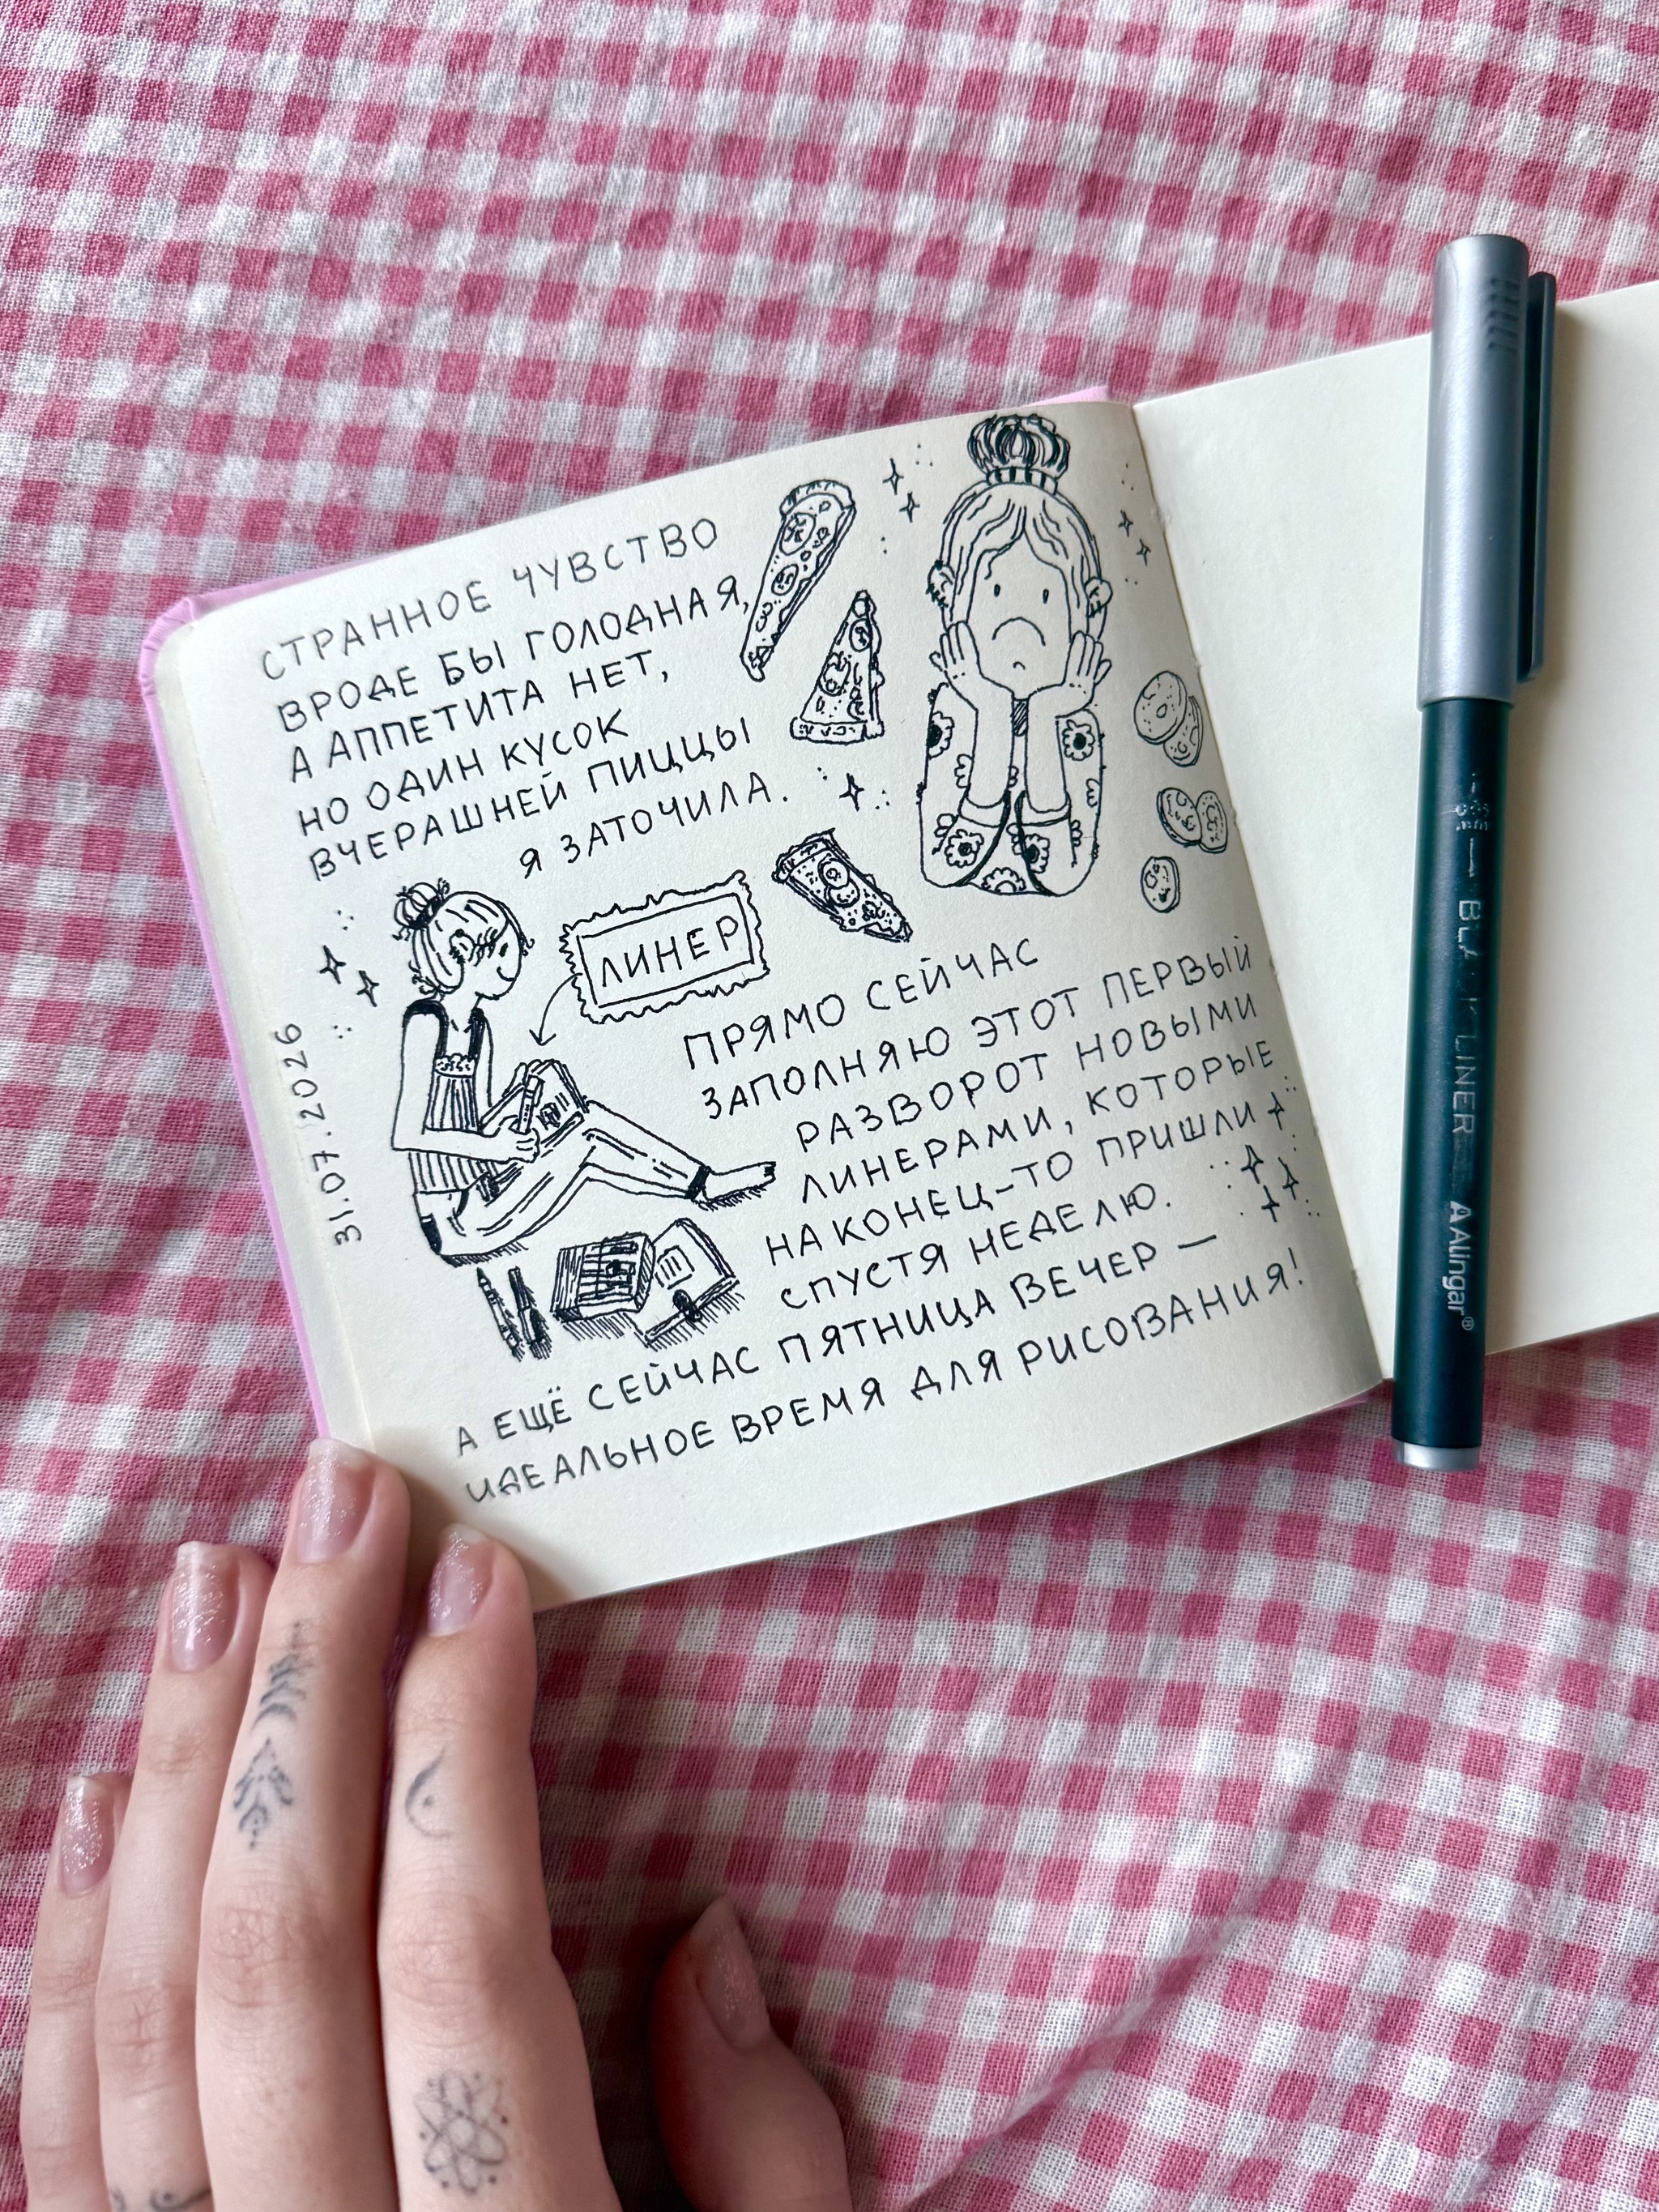 СТРАННОЕ ЧУВСТВО
ВРОДЕ БЫ ГОЛОДНАЯ,
А АППЕТИТА НЕТ,
НО ОДИН КУСОК
ВЧЕРАШНЕЙ ПИЦЦЫ
Я ЗАТОЧИЛА.
ЛИНЕР
31.07.2026
ПРЯМО СЕЙЧАС
ЗАПОЛНЯЮ ЭТОТ ПЕРВЫЙ
РАЗВОРОТ НОВЫМИ
ЛИНЕРАМИ, КОТОРЫЕ
НАКОНЕЦ-ТО ПРИШЛИ
СПУСТЯ НЕДЕЛЮ.
А ЕЩЁ СЕЙЧАС ПЯТНИЦА ВЕЧЕР —
ИДЕАЛЬНОЕ ВРЕМЯ ДЛЯ РИСОВАНИЯ!
LINER AAlingar®